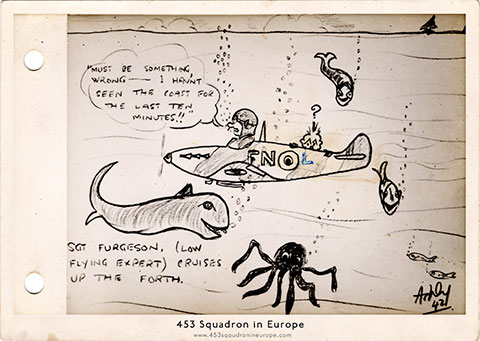 "MUST BE SOMETHING
WRONG — I HAVN'T
SEEN THE COAST FOR
THE LAST TEN
MINUTES!!"
?
FN
SGT FURGESON, (LOW
FLYING EXPERT) CRUISES
UP THE FORTH.
42
453 Squadron in Europe
www.453sqaudronineurope.com